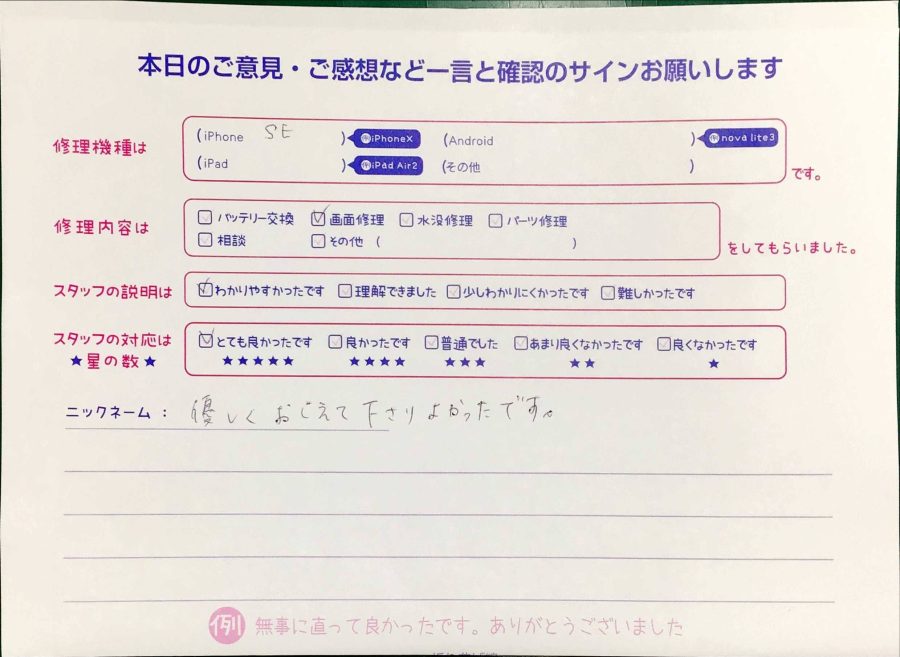 本日のご意見・ご感想など一言と確認のサインお願いします
修理機種は
(iPhone SE ) 例iPhoneX (Android ) 例nova lite3
(iPad ) 例iPad Air2 (その他 ) です。
修理内容は
バッテリー交換 画面修理 水没修理 パーツ修理
相談 その他 ( ) をしてもらいました。
スタッフの説明は わかりやすかったです 理解できました 少しわかりにくかったです 難しかったです
スタッフの対応は とても良かったです 良かったです 普通でした あまり良くなかったです 良くなかったです
★星の数★ ★★★★★ ★★★★ ★★★ ★★ ★
ニックネーム: 優しくおしえて下さりよかったです。
例 無事に直って良かったです。ありがとうございました